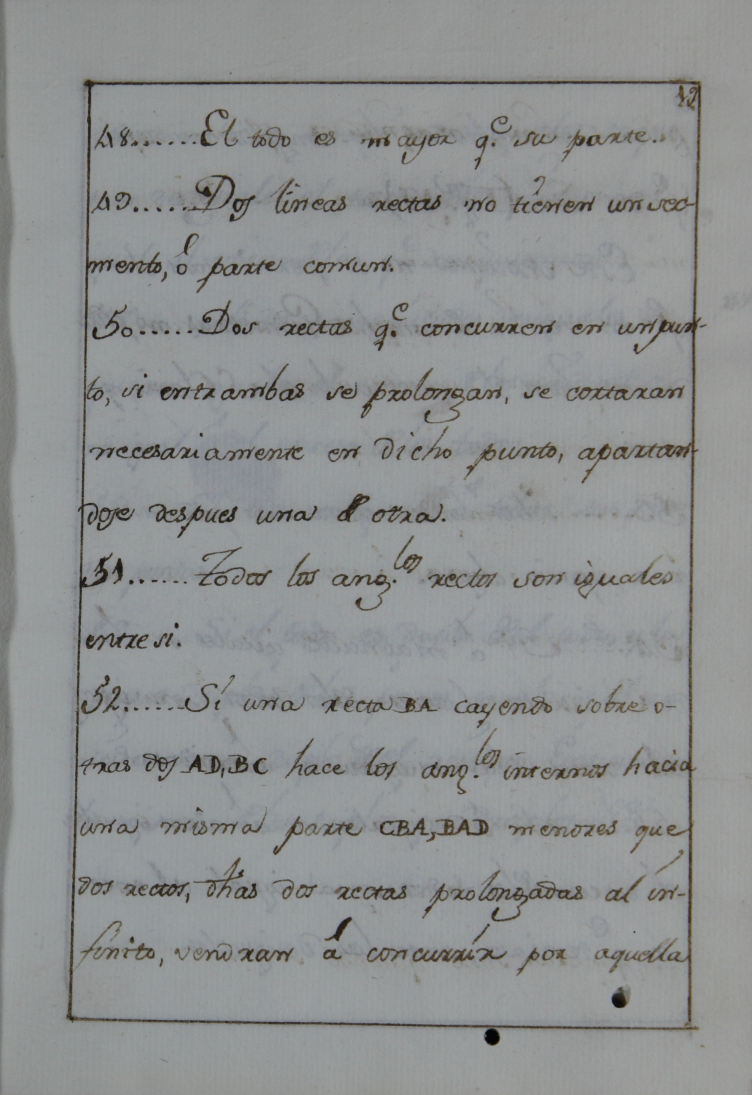 12
48......El todo es mayor q.e su parte.
49.....Dos lineas rectas no tienen un sec-
mento, ó parte comun.
50......Dos rectas q.e concurren en un pun-
to, si entrambas se prolongan, se cortaran
necesariamente en dicho punto, apartan-
dose despues una d otra.
51......Todos los ang.los rectos son iguales
entre si.
52......Si una recta BA cayendo sobre o-
tras dos AD, BC hace los ang.los internos hacia
una misma parte CBA, BAD menores que
dos rectos, dhas dos rectas prolongadas al in-
finito, vendran á concurrir por aquella